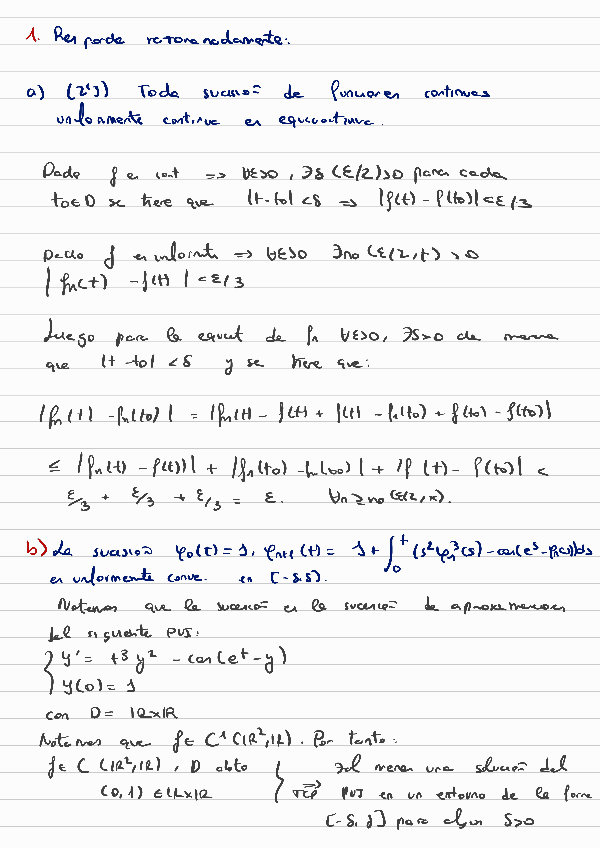 1. Responde razonadamente:
a) (2'5) Toda sucesión de funciones continuas
uniformemente continua es equicontinua.
Dado f es cont => ∀ε>0, ∃δ(ε/2)>0 para cada
t0∈D se tiene que |t-t0|<δ => |f(t) - f(t0)|<ε/3
Dado f es uniformte => ∀ε>0 ∃n0(ε/2,t)>0
|fn(t) - f(t)|<ε/3
Luego para la equicont de fn ∀ε>0, ∃δ>0 de manera
que |t-t0|<δ y se tiene que:
|fn(t) - fn(t0)| = |fn(t) - f(t) + f(t) - fn(t0) + f(t0) - f(t0)|
≤ |fn(t) - f(t)| + |fn(t0) - f(t0)| + |f(t) - f(t0)| <
ε/3 + ε/3 + ε/3 = ε. ∀n≥n0(ε/2,x).
b) La sucesión φ0(t)=1, φn+1(t) = 1+∫0^t (s²φn³(s) - cos(e^s - φn(s)))ds
es uniformente conve. en [-δ,δ].
Notemos que la sucesión es la sucesión de aproximaciones
del siguiente PVI:
{ y' = t³y² - cos(e^t - y)
y(0) = 1
con D = ℝxℝ
Notemos que f∈C¹(ℝ²,ℝ). Por tanto:
f∈C(ℝ²,ℝ), D abto } => TCP ∃al menos una solución del
(0,1)∈ℝxℝ PVI en un entorno de la forma
[-δ,δ] para algún δ>0